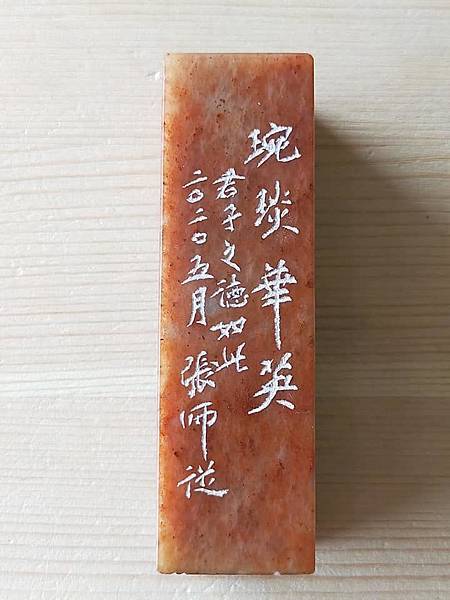 琬琰華英
君子之德如此
二〇二〇五月 張師從